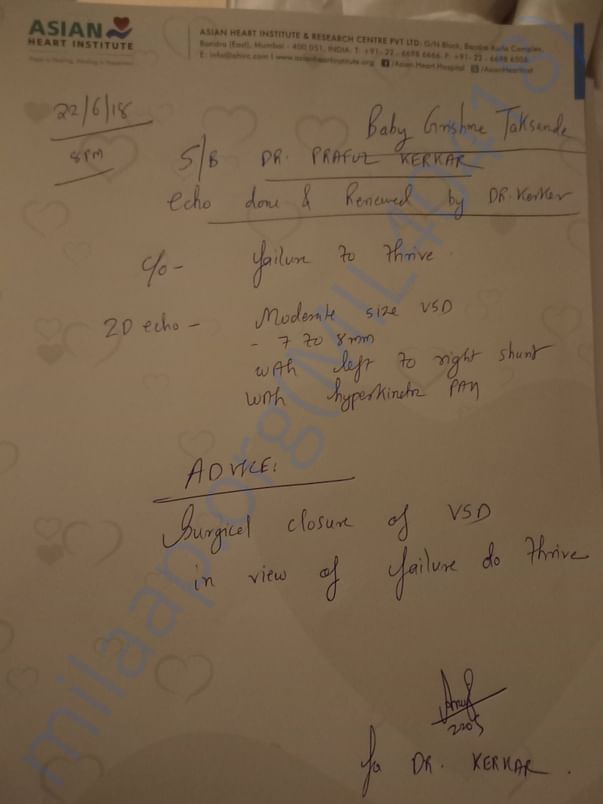 ASIAN
HEART INSTITUTE
ASIAN HEART INSTITUTE & RESEARCH CENTRE PVT LTD: G/N Block, Bandra Kurla Complex,
Bandra (East), Mumbai - 400 051. INDIA. T: +91- 22 - 6698 6666. F: +91 - 22 - 6698 6506.
E: info@ahirc.com I www.asianheartinstitute.org /Asian.Heart.Hospital /AsianHeartInst
22/6/18
8PM
Baby Grishme Taksande
S/B DR. PRAFUL KERKAR
echo done & Reviewed by DR. Kerker
c/o - failure to thrive.
2D echo - Moderate size VSD
- 7 to 8mm
with left to right shunt
with hyperkinetic PAH
ADVICE:
Surgical closure of VSD
in view of failure do thrive
2205
for DR. KERKAR.
milaap.org(MIL40413)